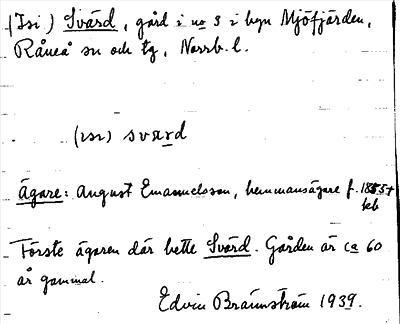 (Isi) Svärd, gård i no 3 i byn Mjöfjärden,
Råneå sn och tg, Norrb. l.
(ısı) svärd
Ägare: August Emanuelsson, hemmansägare f. 1855 +
Förste ägaren där hette Svärd. Gården är ca 60
år gammal.
Edvin Brännström 1939.